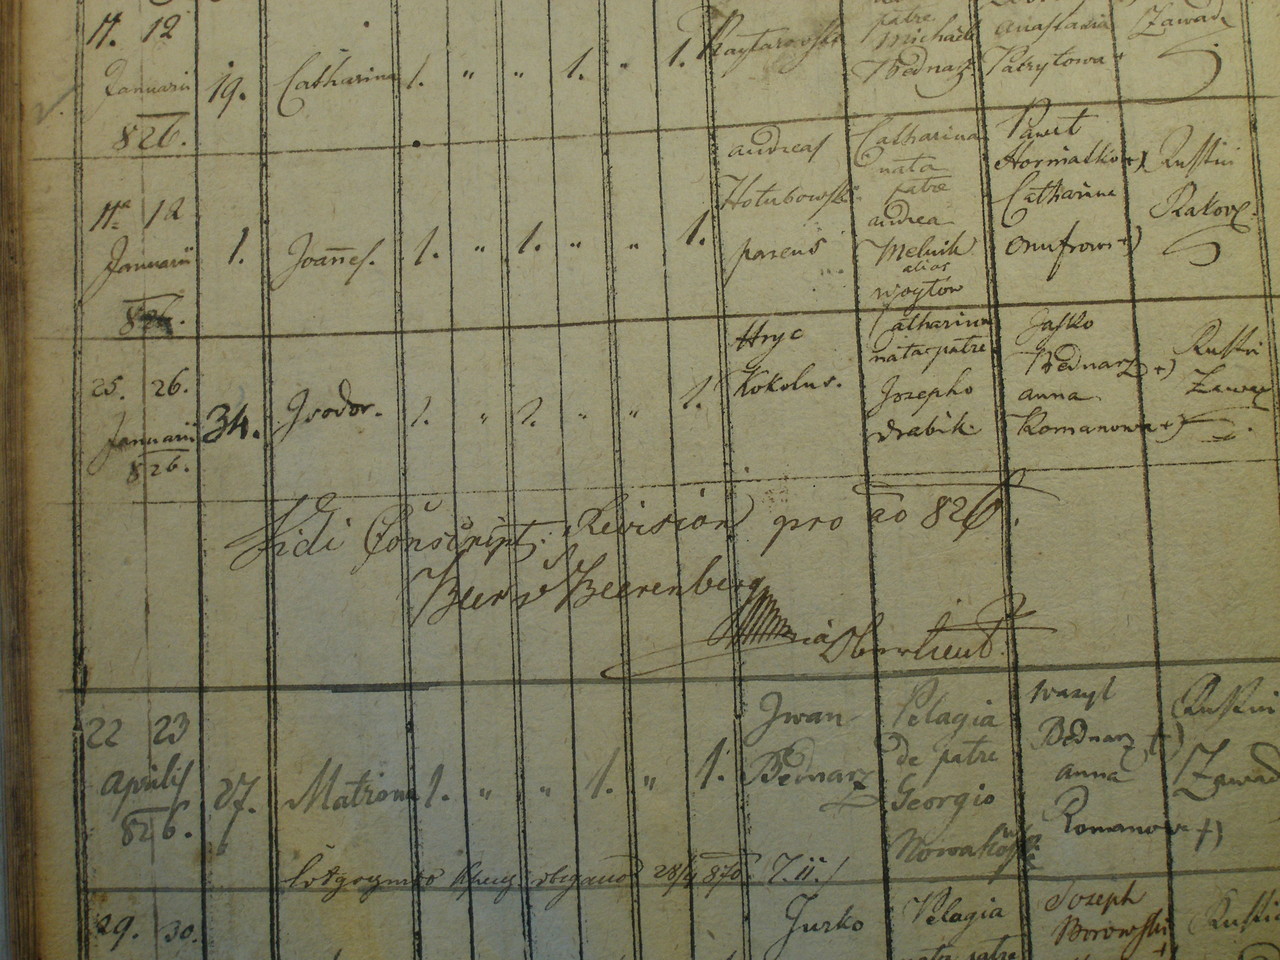 11. 12
Januarii
826.
19.
Catharina
1. " " 1. " 1.
patre
Michaele
Bednarz
Anastasia
Patrytowa +
Zawad
11a 12
Januarii
826.
1.
Joanes.
1. " 1. " " 1.
Andreas
Hołubowski
parens
Catharina
nata
patre
Andrea
Melnik
alias
Woytów
Paweł
Hormatko +)
Catharina
Onufrow +)
Rustici
25. 26.
Januarii
826.
34.
Isodor.
1. " 1. " " 1.
Hryc
Kokolus.
Catharina
nata patre
Josepho
Drabik
Jasko
Bednarz +)
Anna
Romanowa +)
Rustici
Zawad
Vidi Conscript. Revision pro ao 826.
Beer v Beerenberg
Oberlieut.
22 23
Aprilis
826.
27.
Matrona
1. " " 1. " 1.
Iwan
Bednarz
Pelagia
de patre
Georgio
Wasyl
Bednarz +)
Anna
Romanowa +)
Rustici
Zawad
28/4 870
29. 30.
Jurko
Pelagia
nata patre
Joseph
Borowski
Rustici